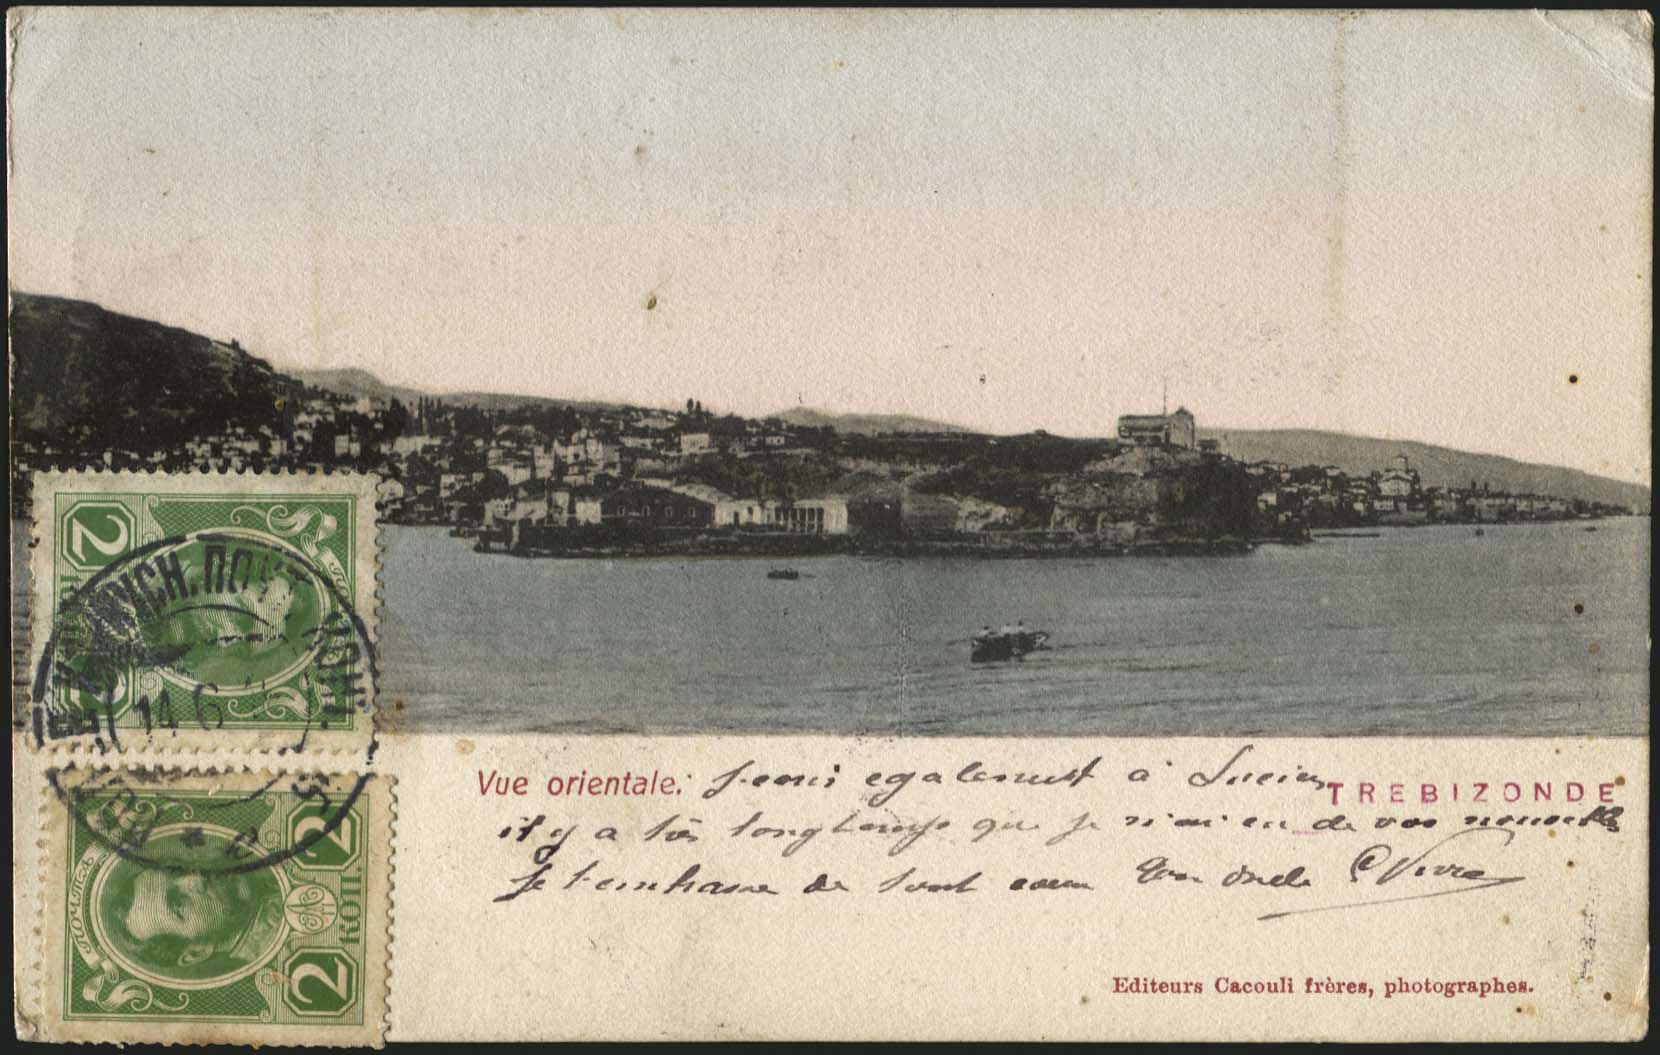 Vue orientale.
j'ecris egalement à Lucien
TREBIZONDE
il y a très longtemps que je n'ai eu de vos nouvelles
Je t'embrasse de tout coeur Ton oncle
Editeurs Cacouli frères, photographes.
2
14 6
ПОЧТА
2 КОП. 2